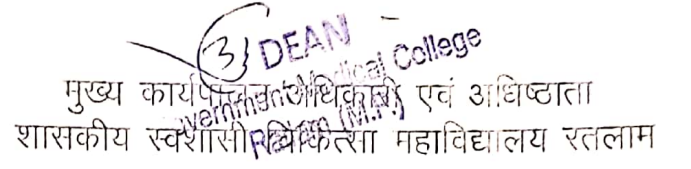 3
DEAN
Government Medical College
Ratlam (M.P.)
मुख्य कार्यपालन अधिकारी एवं अधिष्ठाता
शासकीय स्वशासी चिकित्सा महाविद्यालय रतलाम